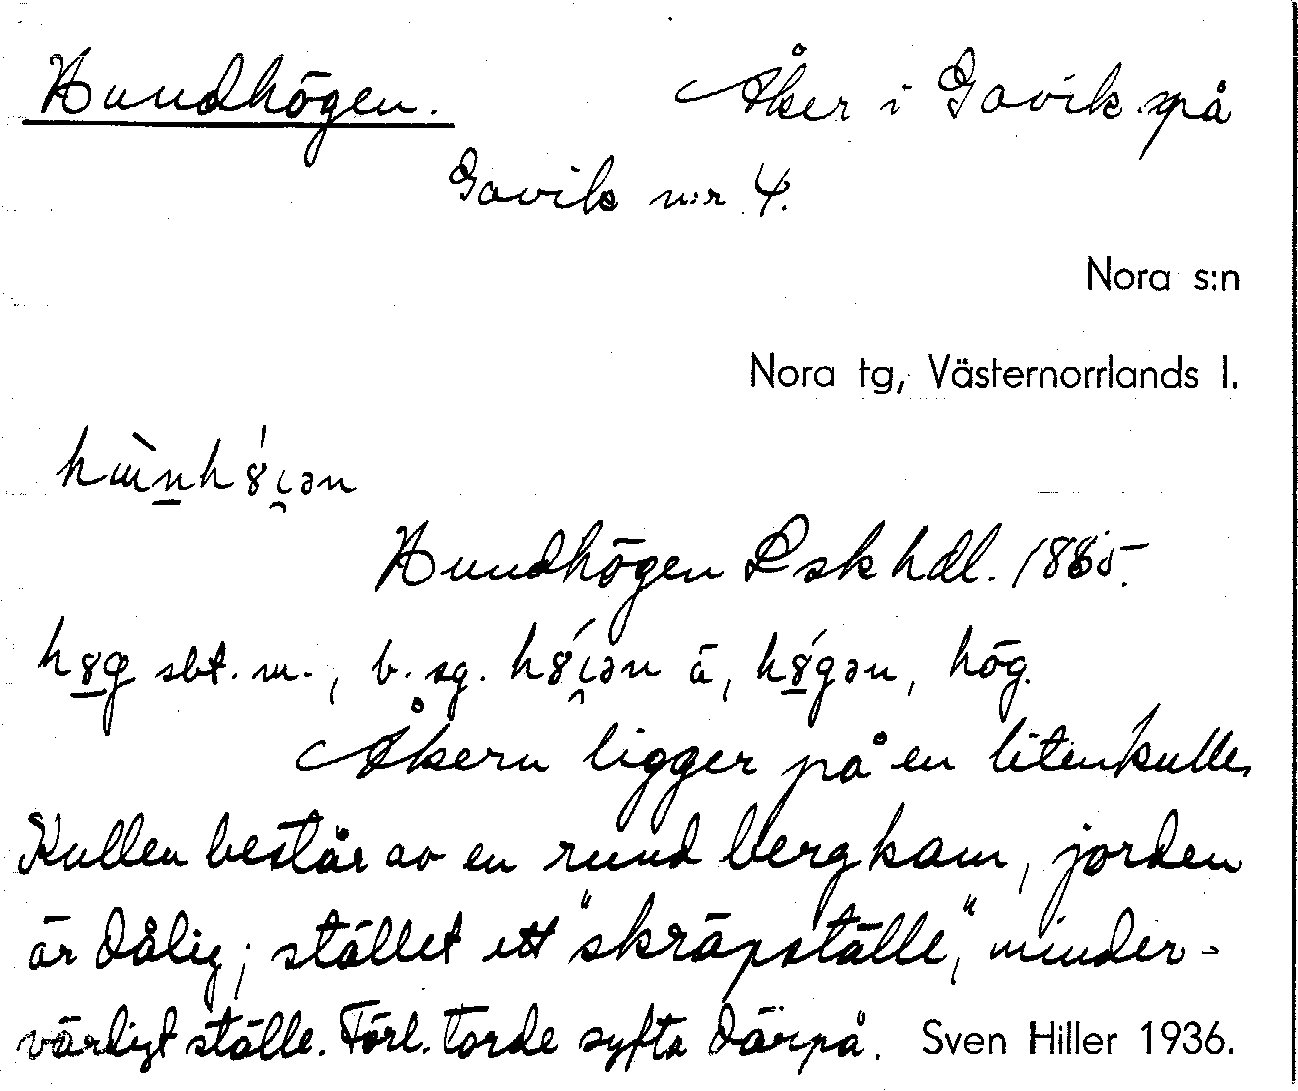 Hundhögen. Åker i Gavik på
Gavik n:r 4.
Nora s:n
Nora tg, Västernorrlands l.
Hundhögen Lskhdl. 1885.
sbt. m., b. sg. ä, hög.
Åkern ligger på en liten kulle,
Kullen består av en rund bergkam, jorden
är dålig; stället ett "skräpställe", minder-
värdigt ställe. Förl. torde syfta därpå. Sven Hiller 1936.